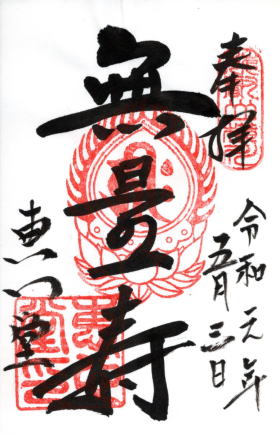 奉拝
令和元年
五月三日
無量寿
恵心堂